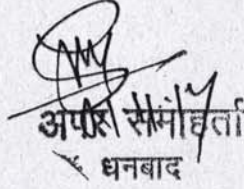 अपर समाहर्ता
धनबाद